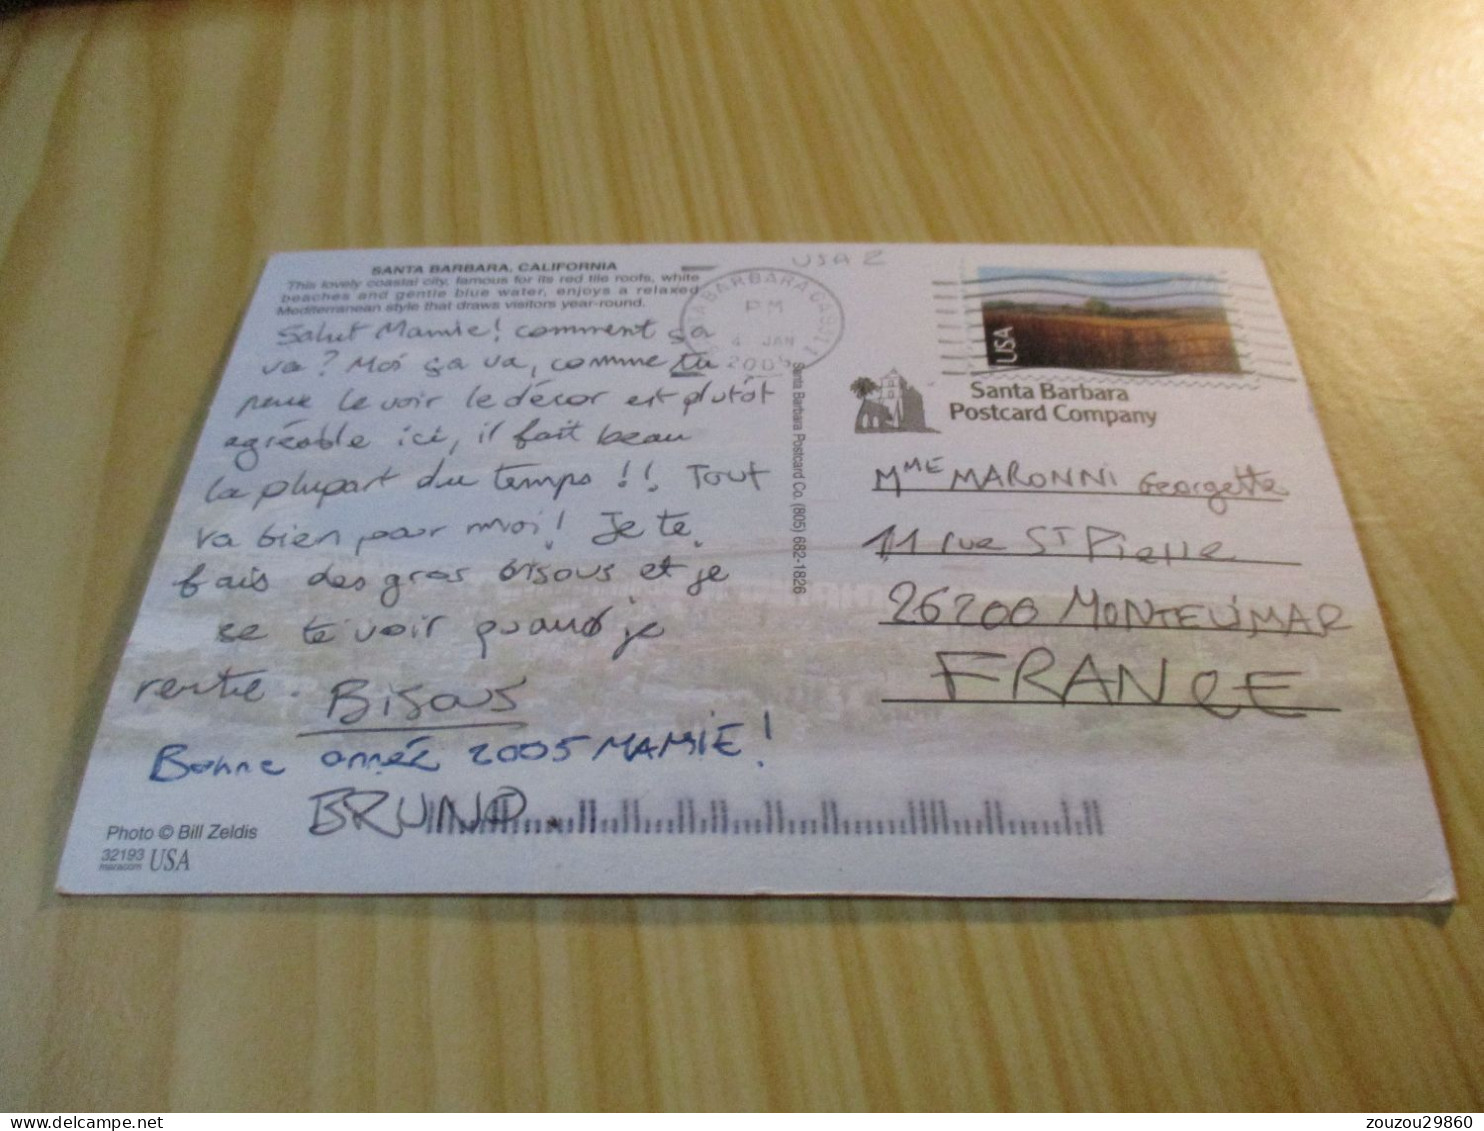 SANTA BARBARA, CALIFORNIA
This lovely coastal city, famous for its red tile roofs, white
beaches and gentle blue water, enjoys a relaxed
Mediterranean style that draws visitors year-round.
Salut Mamie! comment ça
va? Moi ça va, comme tu
peux le voir le décor est plutôt
agréable ici, il fait beau
la plupart du temps!! Tout
va bien pour moi! Je te
fais des gros bisous et je
te voir quand je
rentre. Bisous
Bonne année 2005 MAMIE!
BRUNO.
Photo © Bill Zeldis
32193
USA
USA 2
SANTA BARBARA
PM
4 JAN
2005
Santa Barbara Postcard Co. (805) 682-1826
USA
Santa Barbara
Postcard Company
MME MARONNI Georgette
11 rue ST Pierre
26200 MONTELIMAR
FRANCE
zouzou29860